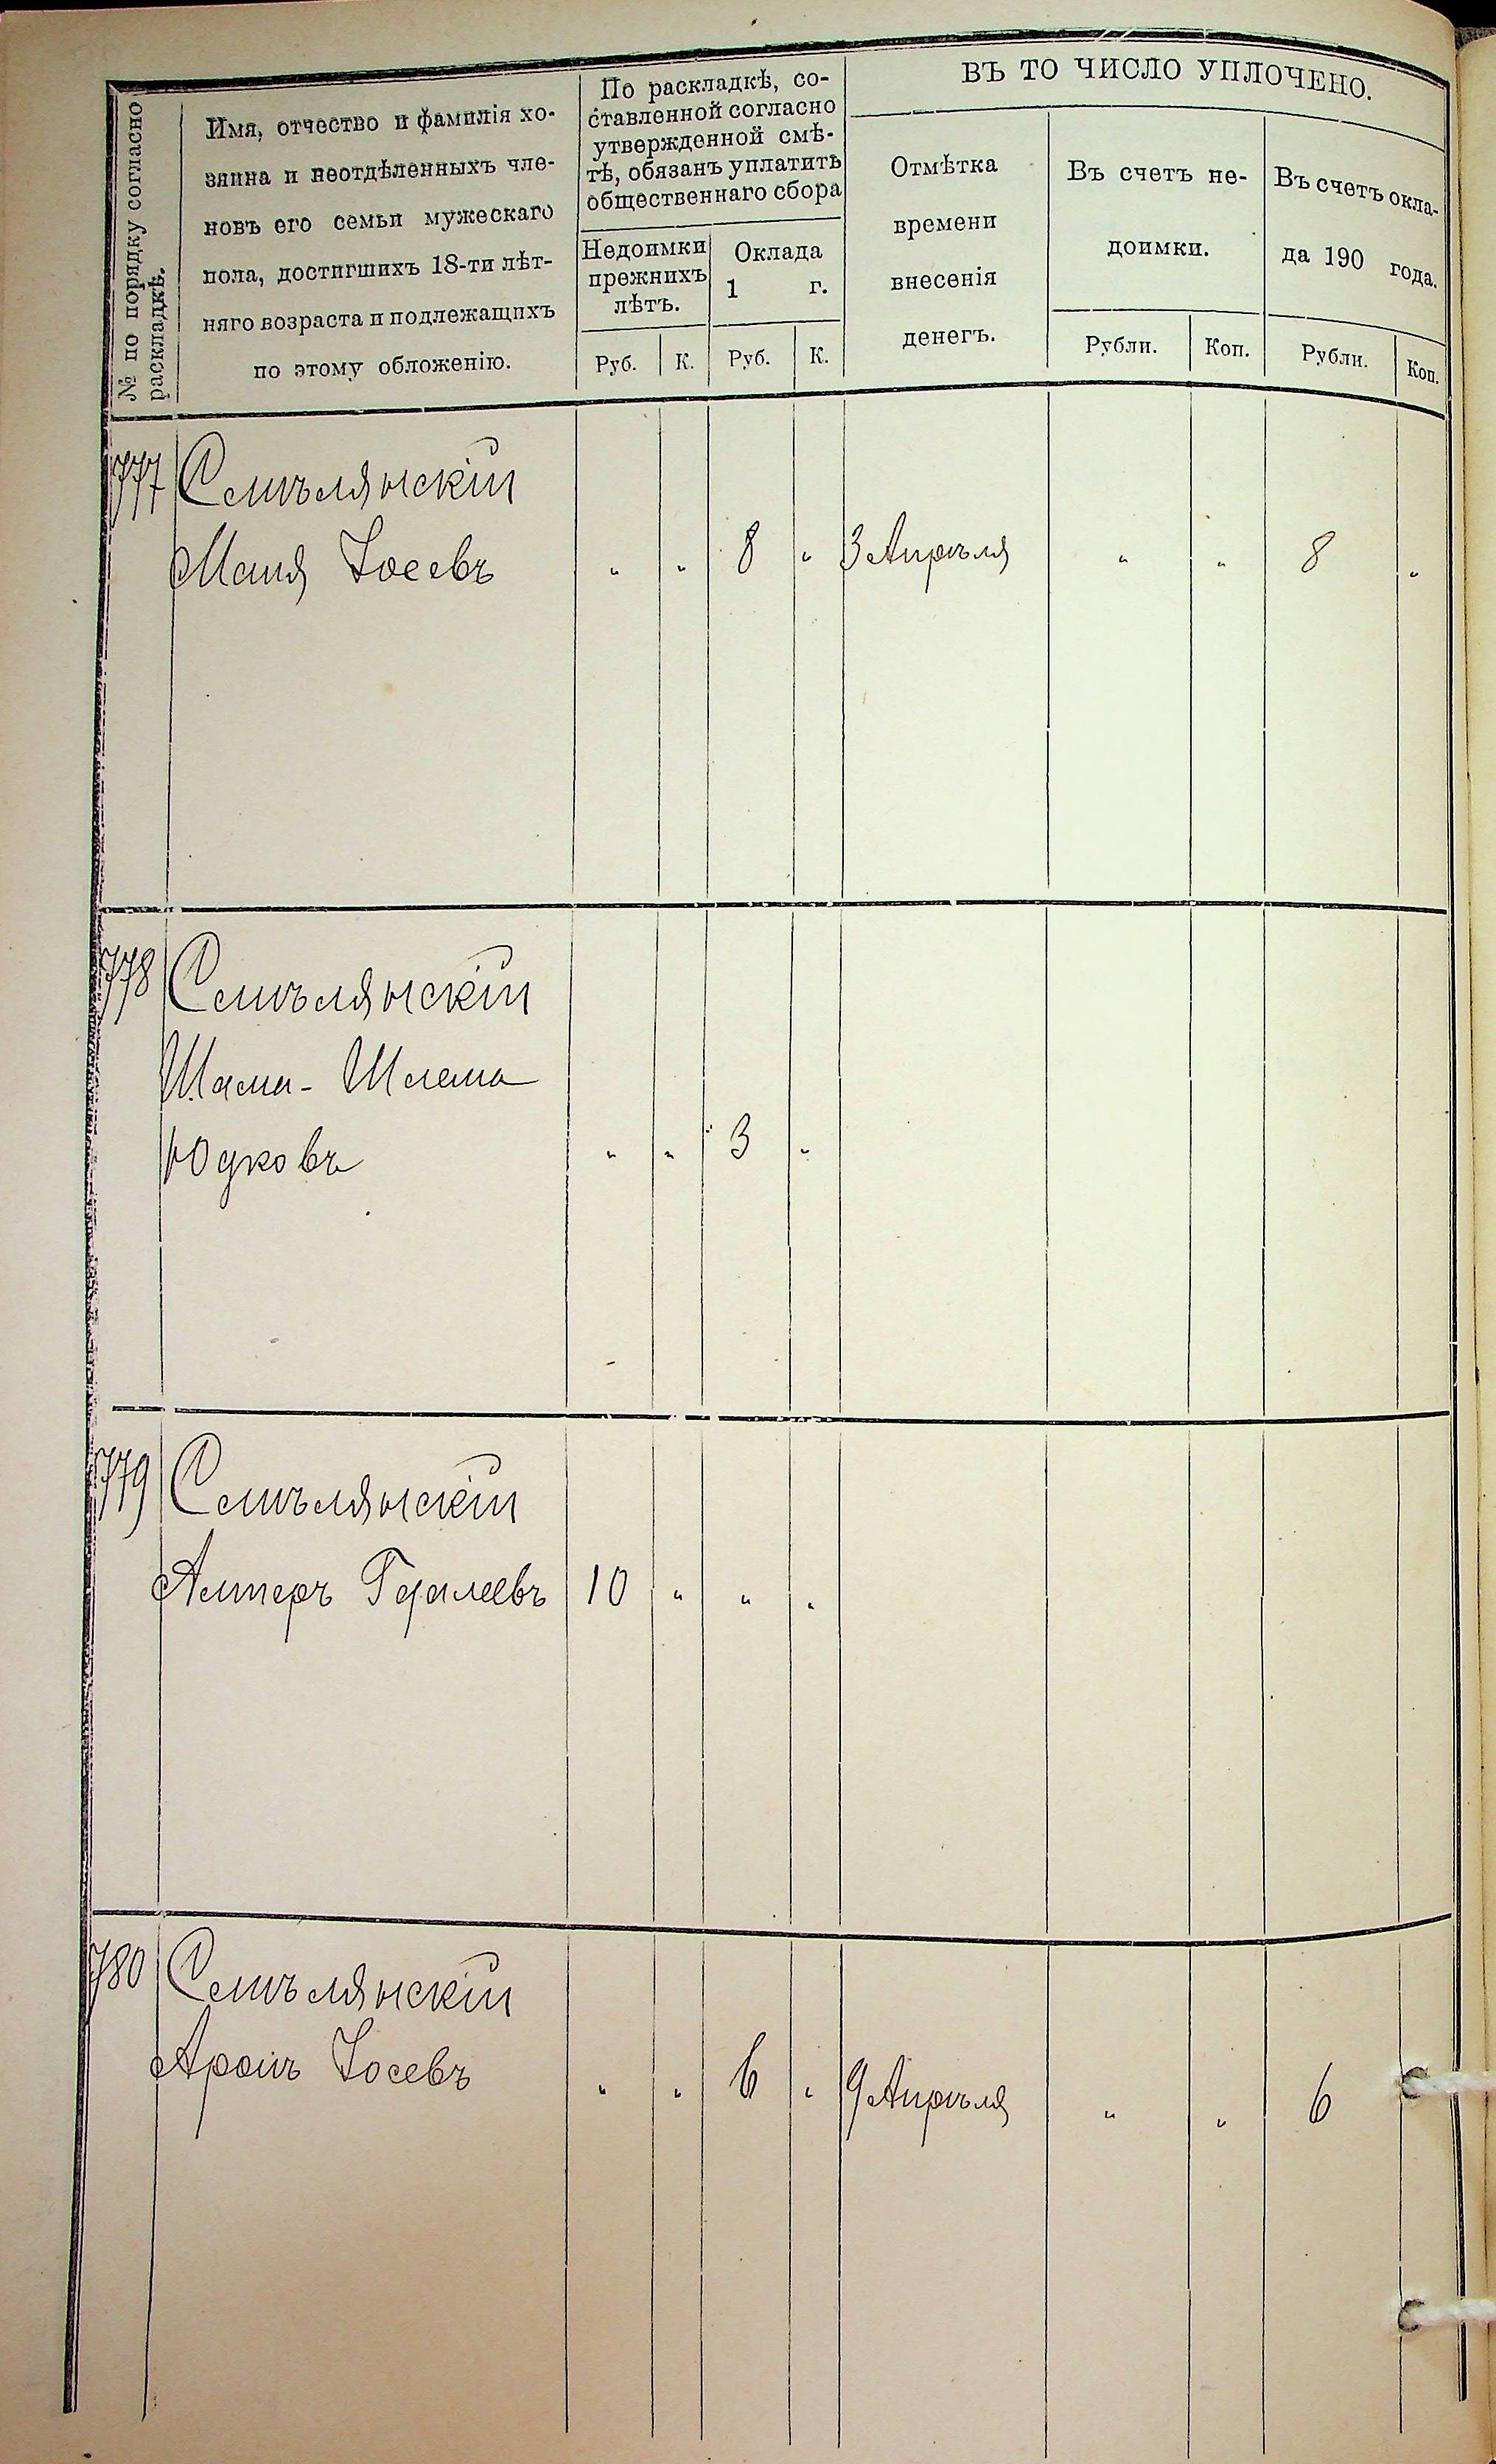 № по порядку согласно
раскладкѣ.
Имя, отчество и фамилія хо-
зяина и неотдѣленныхъ чле-
новъ его семьи мужескаго
пола, достигшихъ 18-ти лѣт-
няго возраста и подлежащихъ
по этому обложенію.
По раскладкѣ, со-
ставленной согласно
утвержденной смѣ-
тѣ, обязанъ уплатить
общественнаго сбора
Недоимки
прежнихъ
лѣтъ.
Оклада
1 г.
Руб. К. Руб. К.
ВЪ ТО ЧИСЛО УПЛОЧЕНО.
Отмѣтка
времени
внесенія
денегъ.
Въ счетъ не-
доимки.
Въ счетъ окла-
да 190 года.
Рубли. Коп. Рубли. Коп.
777 Смѣлянскій
Маня Іосевъ " " 8 " 3 Апрѣля " " 8 "
778 Смѣлянскій
Шама - Шлема
Юдковъ " " 3 "
779 Смѣлянскій
Алтеръ Гдалеевъ 10 " " "
780 Смѣлянскій
Аронъ Іосевъ " " 6 " 9 Апрѣля " " 6